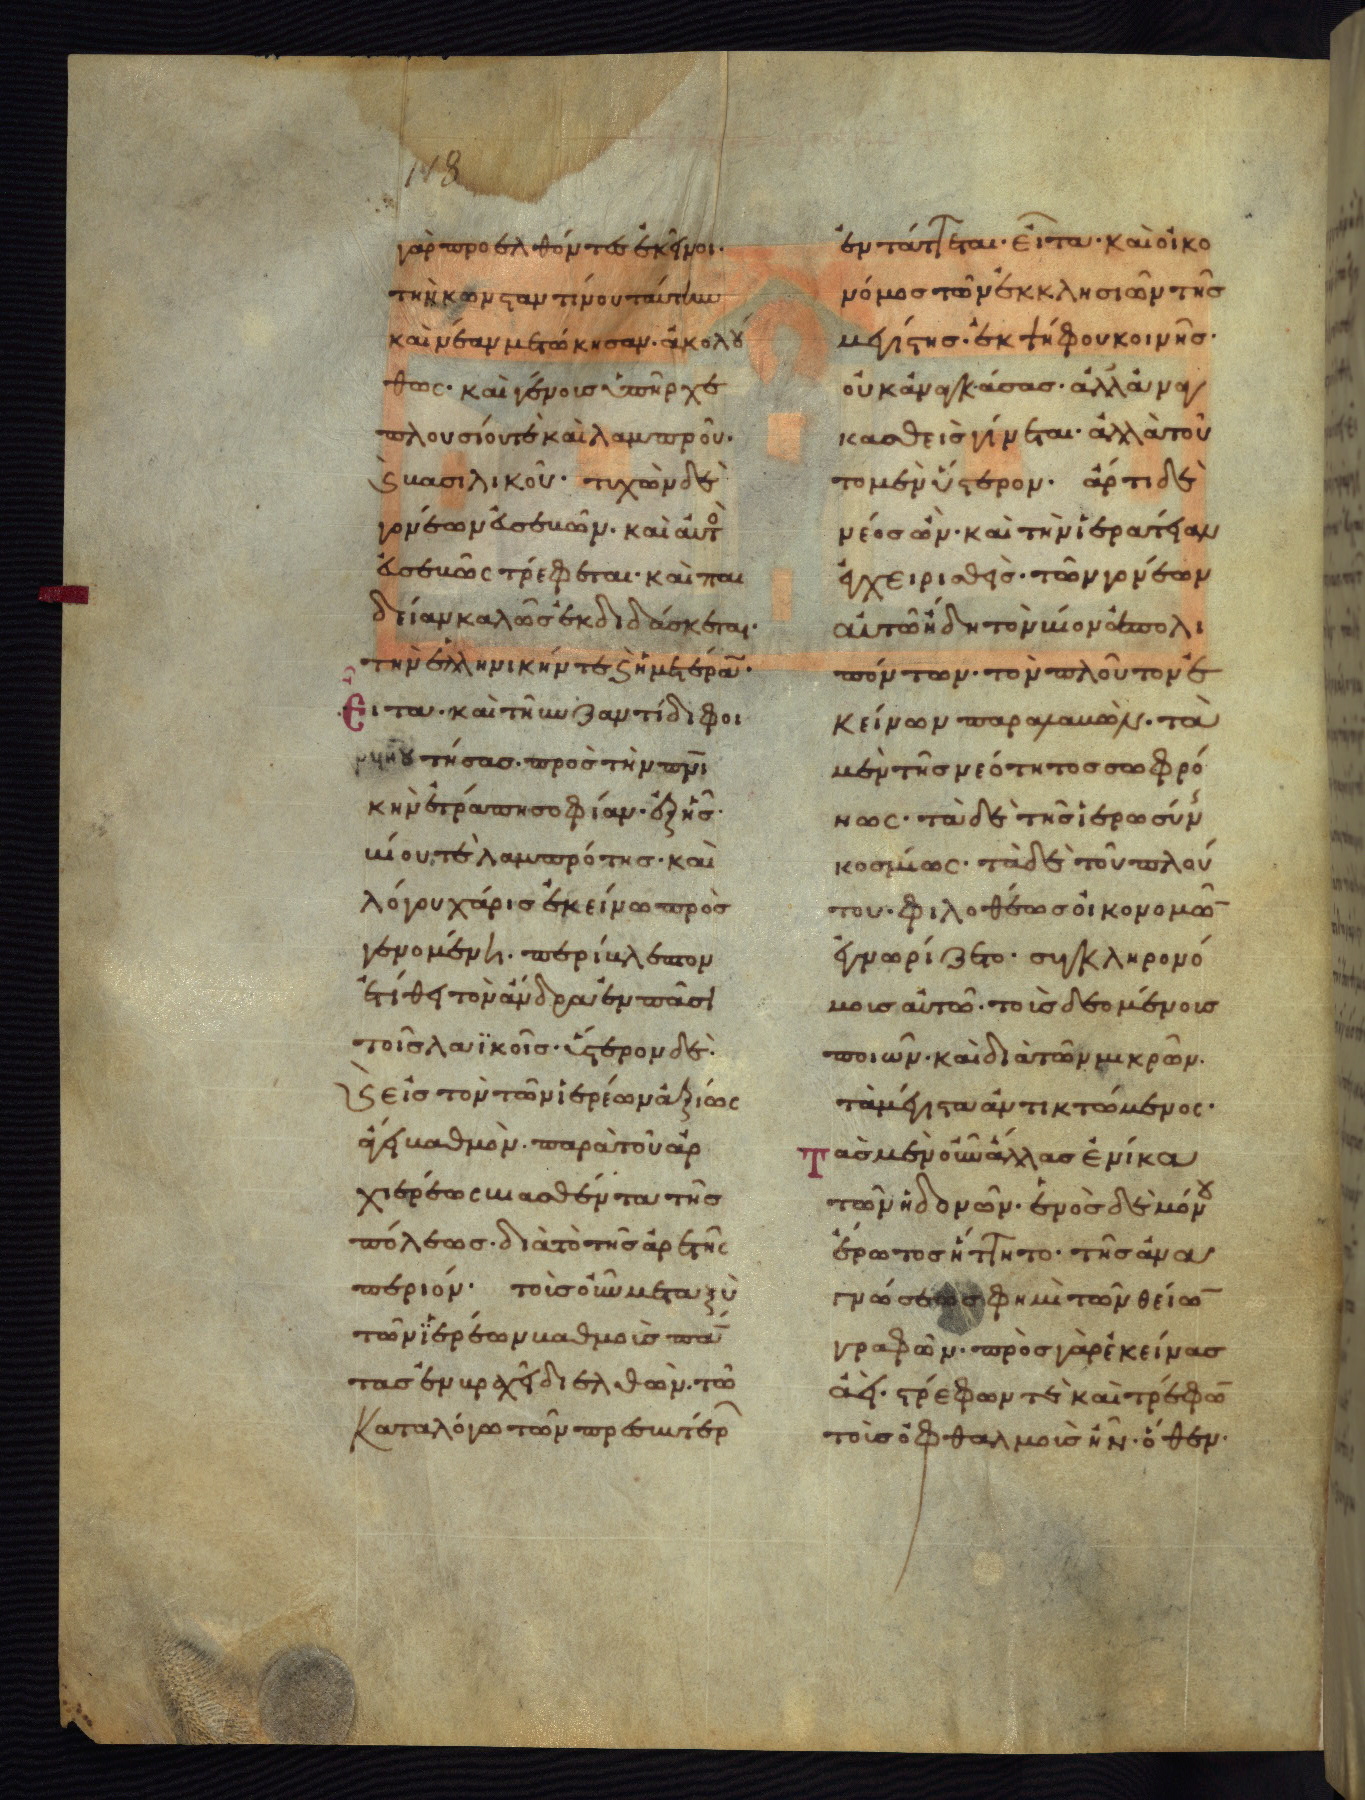 118
γὰρ προελθόντες ἐκεῖνοι·
τὴν κωνσταντίνου ταύτην
καὶ νέαν μετώκησαν· ἀκολού
θως· καὶ γένοις ὑπῆρχε
πλουσίου τὲ καὶ λαμπροῦ·
καὶ βασιλικοῦ· τυχὼν δὲ
γονέων εὐσεβῶν· καὶ αὐτὸ
εὐσεβῶς τρέφεται· καὶ παι
δείαν καλῶς ἐκδιδάσκεται·
τὴν ἑλληνικήν τε καὶ ἡμετέραν·
Εἶτα· καὶ τῆ βυζαντίδι φοι
τήσας· πρὸς τὴν πνι
κὴν ἐτράπη σοφίαν· ἐξ ἧς·
βίου τὲ λαμπρότης· καὶ
λόγου χάρις ἐκείνω προσ
γενομένη· περίβλεπτον
ἐτίθει τὸν ἄνδρα ἐν πᾶσι
τοῖς λαϊκοῖς· ὕστερον δὲ·
καὶ εἰς τὸν τῶν ἱερέων ἀξίως
ἄγει βαθμὸν· παρὰ τοῦ ἀρ
χιερέως βιασθέντα τῆς
πόλεως· διὰ τὸ τῆς ἀρετῆς
περιόν· τοῖς οὖν μεταξὺ
τῶν ἱερέων βαθμοῖς πάν
τας ἐν βραχεῖ διελθὼν· τῶ
Καταλόγω τῶν πρεσβυτέρ
ἐντάττεται· εἶτα· καὶ οἰκο
νόμος τῶν ἐκκλησιῶν τῆς
μεγίστης· ἐκ ψήφου κοινῆς·
οὐκ ἀναγκάσας· ἀλλ' ἀναγ
κασθεὶς γίνεται· ἀλλὰ τοῦ
το μὲν ὕστερον· ἄρτι δὲ
νέος ὢν· καὶ τὴν ἱερατείαν
ἐγχειρισθεὶς· τῶν γονέων
αὐτῶ ἤδη τὸν βίον ἀπολι
πόντων· τὸν πλοῦτον ἐ
κείνων παραλαβὼν· τὰ
μὲν τῆς νεότητος σωφρό
νως· τὰ δὲ τῆς ἱερωσύν
κοσμίως· τὰ δὲ τοῦ πλού
του· φιλοθέως οἰκονομῶν
ἐγνωρίζετο· συγκληρονό
μοις αὐτῶ· τοῖς δεομένοις
ποιῶν· καὶ διὰ τῶν μικρῶν·
τὰ μέγιστα ἀντικτώμενος·
Τὰς μὲν οὖν ἄλλας ἐνίκα
τῶν ἡδονῶν· ἑνὸς δὲ μόνου
ἔρωτος ἥττητο· τῆς ἀνα
γνώσεως φημὶ τῶν θείων
γραφῶν· πρὸς γὰρ ἐκείνας
ἀεὶ· στρέφων τὲ καὶ τρέφων
τοῖς ὀφθαλμοῖς ἦν· ὅθεν·